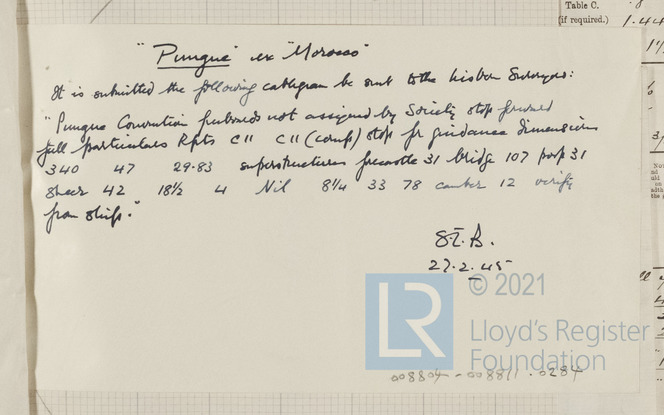 Table C.
(if required.)
1.44
"Pungue" ex "Morosso"
It is submitted the following cablegram be sent to the Lisbon Surveyors:
"Pungue Convention freeboards not assigned by Society stop forward
full particulars Rpts C11 C11 (comp) stop for guidance dimensions
340 47 29.83 superstructures forecastle 31 bridge 107 poop 31
sheer 42 18½ 4 Nil 8¼ 33 78 camber 12 verify
from ship."
S.T.B.
27.2.45
LR
© 2021
Lloyd's Register
Foundation
008804 - 008811 - 0284